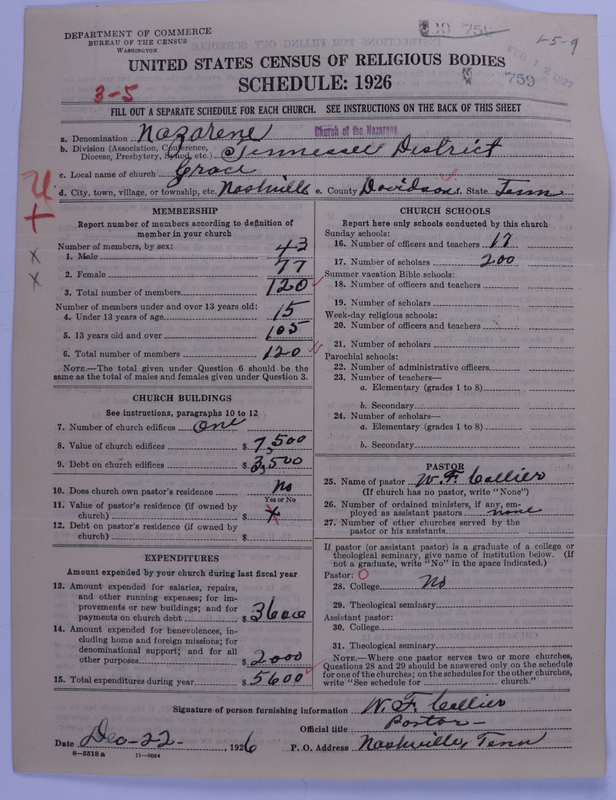 DEPARTMENT OF COMMERCE
BUREAU OF THE CENSUS
WASHINGTON
1-5-9
759
UNITED STATES CENSUS OF RELIGIOUS BODIES
SCHEDULE: 1926
3-5
FILL OUT A SEPARATE SCHEDULE FOR EACH CHURCH. SEE INSTRUCTIONS ON THE BACK OF THIS SHEET
a. Denomination Nazarene Church of the Nazarene
b. Division (Association, Conference, Diocese, Presbytery, Synod, etc.) Tennessee District
c. Local name of church Grace
d. City, town, village, or township, etc. Nashville e. County Davidson f. State Tenn
MEMBERSHIP
Report number of members according to definition of
member in your church
Number of members, by sex:
1. Male 43
2. Female 77
3. Total number of members 120
Number of members under and over 13 years old:
4. Under 13 years of age 15
5. 13 years old and over 105
6. Total number of members 120
NOTE.—The total given under Question 6 should be the
same as the total of males and females given under Question 3.
CHURCH BUILDINGS
See instructions, paragraphs 10 to 12
7. Number of church edifices One
8. Value of church edifices $ 7,500
9. Debt on church edifices $ 3,500
10. Does church own pastor's residence No
Yes or No
11. Value of pastor's residence (if owned by
church) $ x
12. Debt on pastor's residence (if owned by
church) $
EXPENDITURES
Amount expended by your church during last fiscal year
13. Amount expended for salaries, repairs,
and other running expenses; for im-
provements or new buildings; and for
payments on church debt $ 3600
14. Amount expended for benevolences, in-
cluding home and foreign missions; for
denominational support; and for all
other purposes $ 2000
15. Total expenditures during year $ 5600
CHURCH SCHOOLS
Report here only schools conducted by this church
Sunday schools:
16. Number of officers and teachers 17
17. Number of scholars 200
Summer vacation Bible schools:
18. Number of officers and teachers
19. Number of scholars
Week-day religious schools:
20. Number of officers and teachers
21. Number of scholars
Parochial schools:
22. Number of administrative officers
23. Number of teachers—
a. Elementary (grades 1 to 8)
b. Secondary
24. Number of scholars—
a. Elementary (grades 1 to 8)
b. Secondary
PASTOR
25. Name of pastor W. F. Collier
(If church has no pastor, write "None")
26. Number of ordained ministers, if any, em-
ployed as assistant pastors none
27. Number of other churches served by the
pastor or his assistants
If pastor (or assistant pastor) is a graduate of a college or
theological seminary, give name of institution below. (If
not a graduate, write "No" in the space indicated.)
Pastor: O
28. College No
29. Theological seminary
Assistant pastor:
30. College
31. Theological seminary
NOTE.—Where one pastor serves two or more churches,
Questions 28 and 29 should be answered only on the schedule
for one of the churches; on the schedules for the other churches,
write "See schedule for church."
Signature of person furnishing information W. F. Collier
Official title Pastor
Date Dec-22-, 1926 P. O. Address Nashville, Tenn
8—5518 a 11—9054